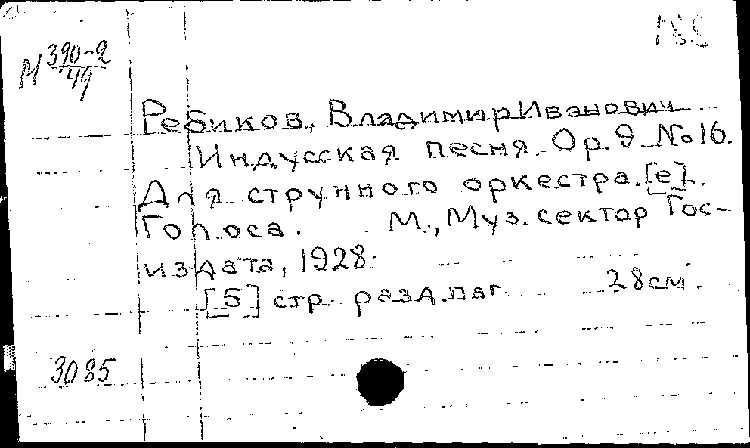 М 390-2
49
Ребиков, Владимир Иванович
Индусская песня. Op. 9 No 16.
Для струнного оркестра. [e]
Голоса. М., Муз. сектор Гос-
издата, 1928.
[5] стр. разд. паг. 28 см.
3085